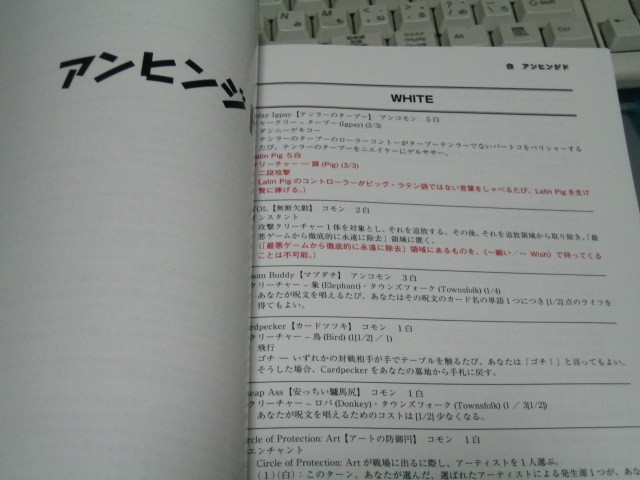 アンヒンジ
白 アンヒンジド
WHITE
Igpay【テンラーのターブー】 アンコモン 5白
ークリー－ターブー (Igpay) (3/3)
ダンニーゲキコー
テンラーのターブーのローラーコントーがターブーテンラーでないパートコをベリシャーする
たび、テンラーのターブーをニエイケーにゲルササー。
atin Pig 5白
リーチャー ― 豚 (Pig) (3/3)
二段攻撃
Latin Pig のコントローラーがピッグ・ラテン語ではない言葉をしゃべるたび、Latin Pig を生け
贄に捧げる。)
OL【無断欠勤】 コモン 2白
ンスタント
攻撃クリーチャー1体を対象とし、それを追放する。その後、それを追放領域から取り除き、「最
悪ゲームから徹底的に永遠に除去」領域に置く。
(「最悪ゲームから徹底的に永遠に除去」領域にあるものを、《～願い／～ Wish》で持ってくる
ことは不可能。)
Buddy【マブダチ】 アンコモン 3白
リーチャー－象 (Elephant)・タウンズフォーク (Townsfolk) (1/4)
あなたが呪文を唱えるたび、あなたはその呪文のカード名の単語1つにつき[1/2]点のライフを
得てもよい。
rdpecker【カードツツキ】 コモン 1白
リーチャー－鳥 (Bird) (1[1/2] / 1)
飛行
ゴチ ― いずれかの対戦相手が手でテーブルを触るたび、あなたは「ゴチ！」と言ってもよい。
そうした場合、Cardpecker をあなたの墓地から手札に戻す。
eap Ass【安っちい驢馬尻】 コモン 1白
リーチャー－ロバ (Donkey)・タウンズフォーク (Townsfolk) (1 / 3[1/2])
あなたが呪文を唱えるためのコストは[1/2]少なくなる。
rcle of Protection: Art【アートの防御円】 コモン 1白
エンチャント
Circle of Protection: Art が戦場に出るに際し、アーティストを1人選ぶ。
(1)(白)：このターン、あなたが選んだ、選ばれたアーティストによる発生源1つが、あな